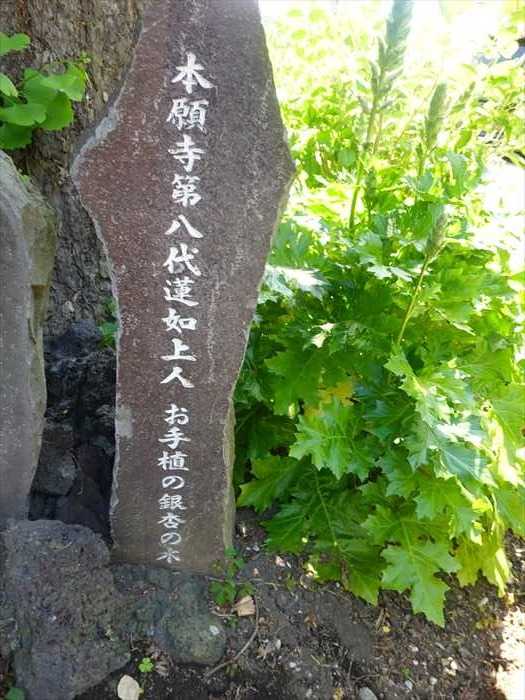 本願寺第八代蓮如上人お手植の銀杏の木